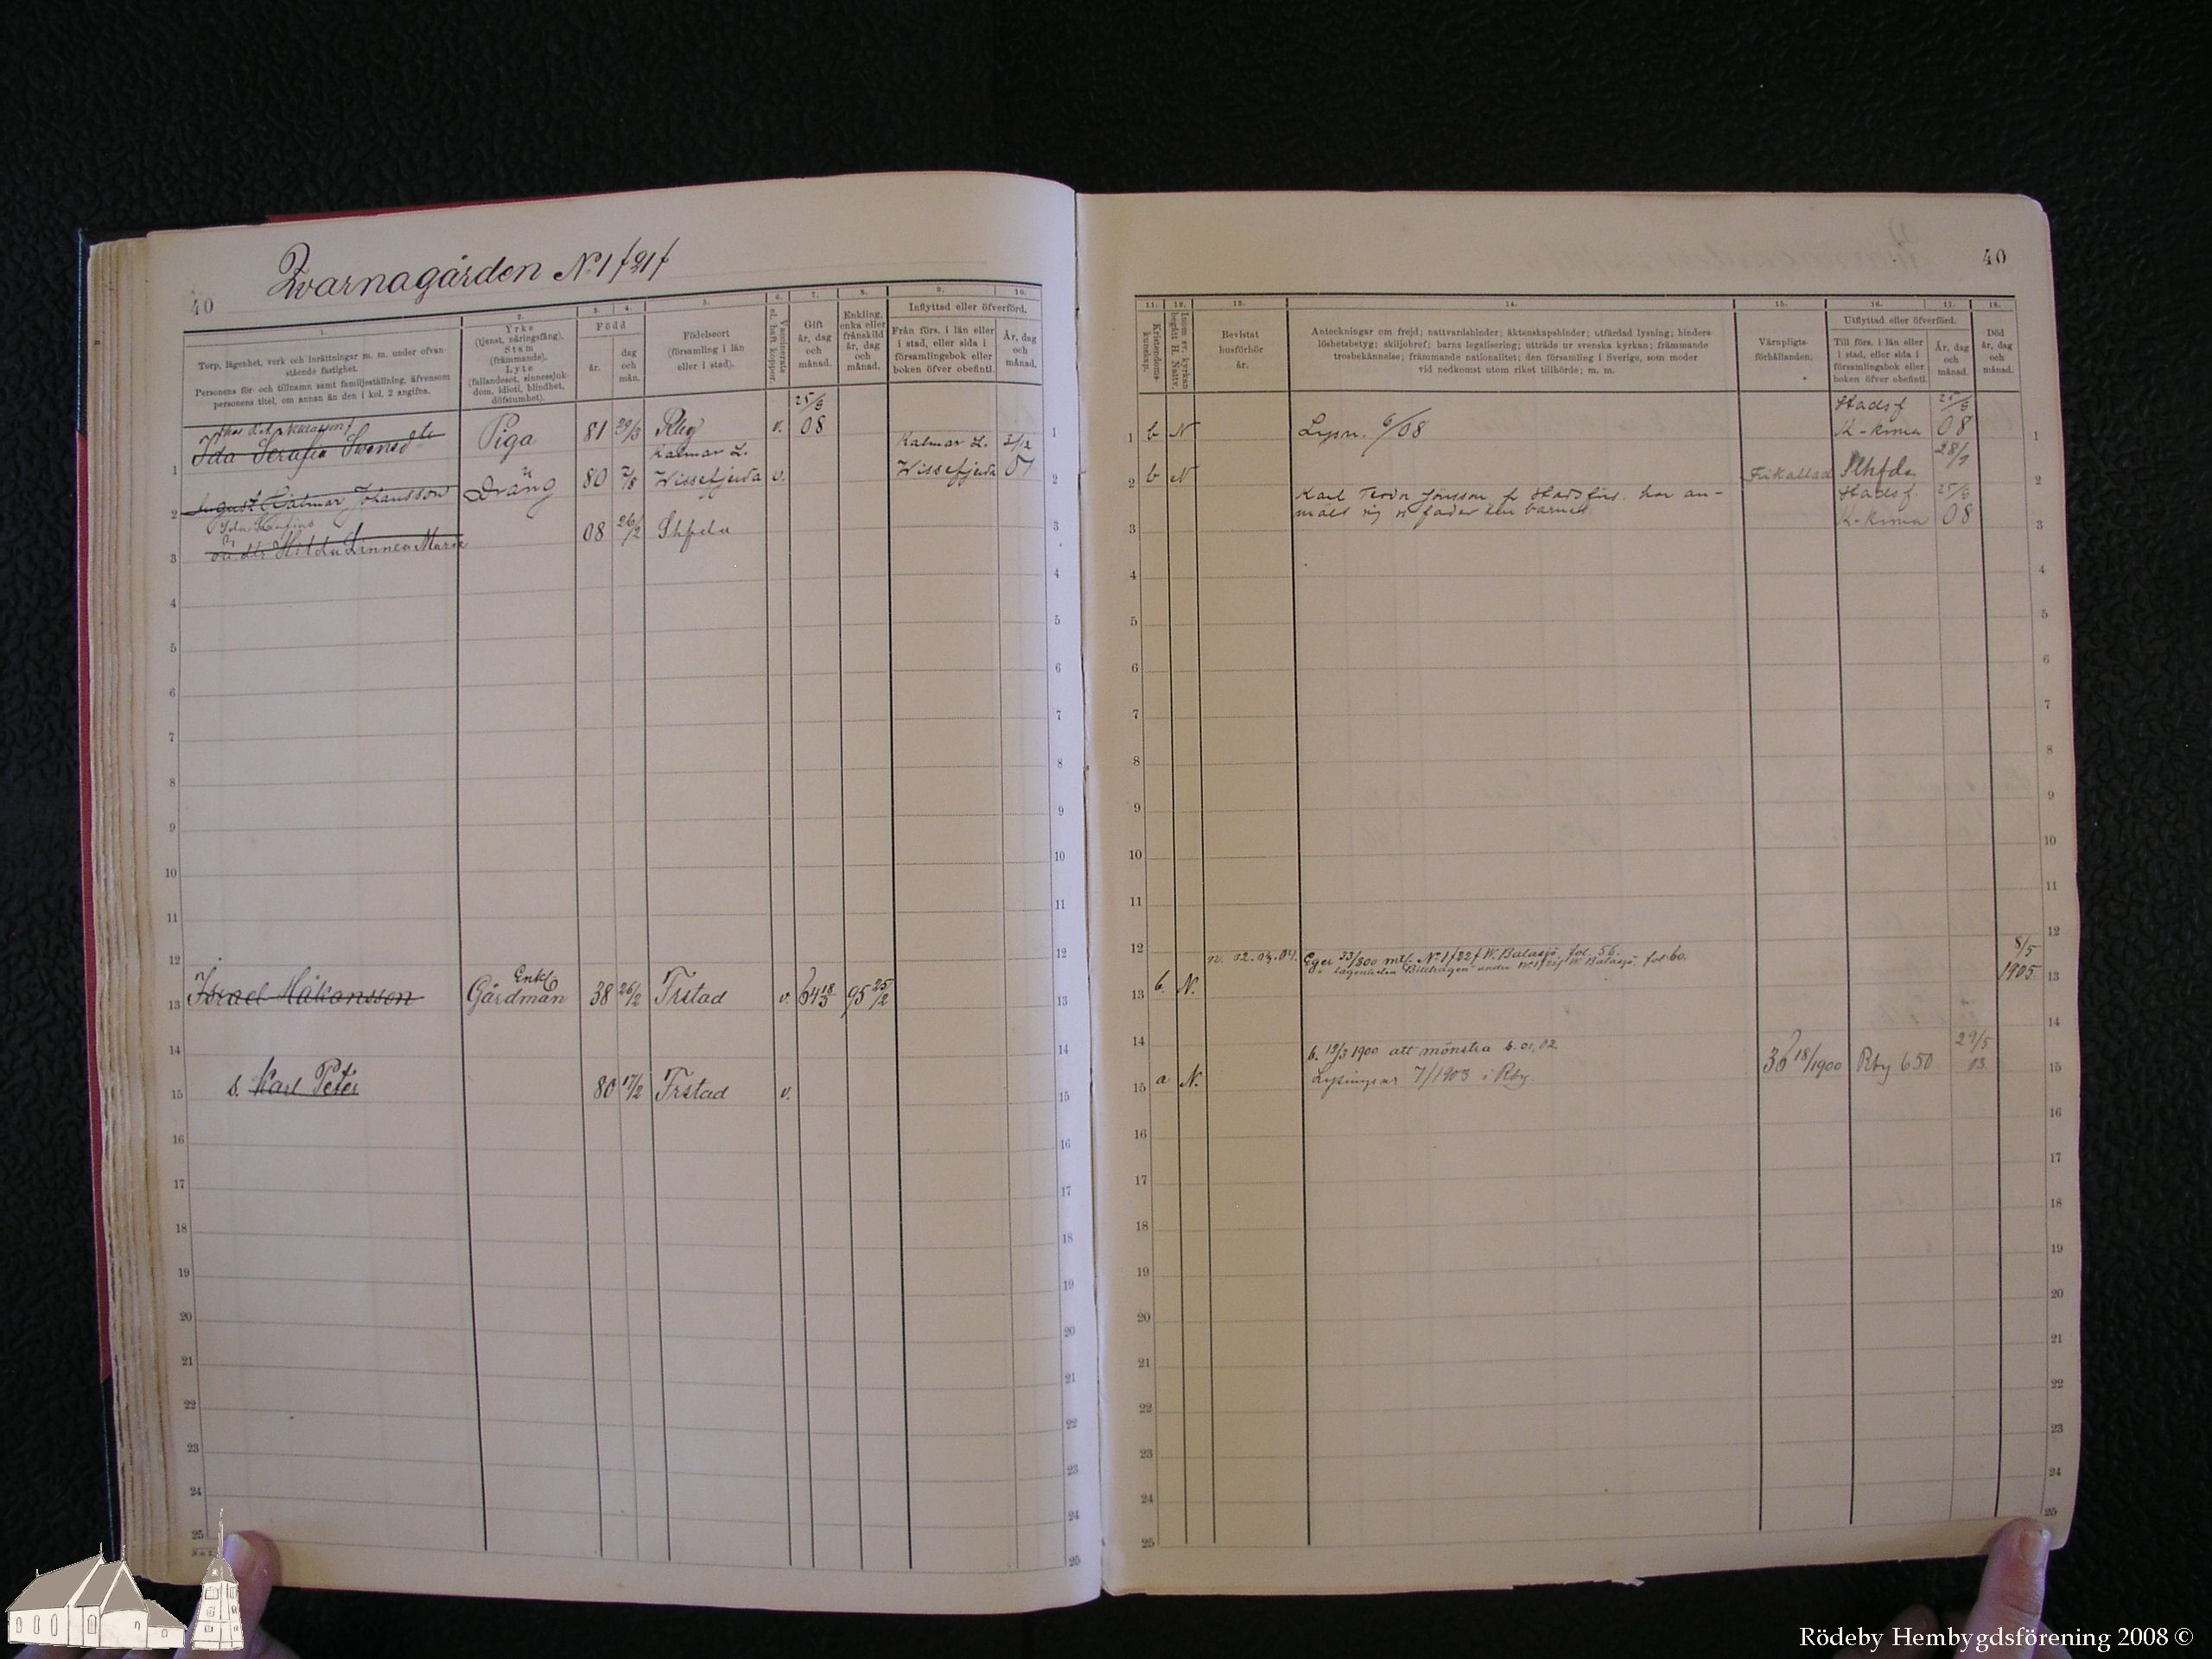 40
Qvarnagården No 1 f 21 f
1.
Torp, lägenhet, verk och inrättningar m. m. under ofvanstående fastighet.
Personens för- och tillnamn samt familjeställning, äfvensom personens titel, om annan än den i kol. 2 angifna.
2.
Yrke
(tjenst, näringsfång).
Stam
(främmande).
Lyte
(fallandesot, sinnessjukdom, idioti, blindhet, döfstumhet).
3. 4.
Född
år.
dag och mån.
5.
Födelseort
(församling i län eller i stad).
6.
Vaccinerats el. haft koppor.
7.
Gift
år, dag och månad.
8.
Enkling, enka eller frånskild
år, dag och månad.
9. 10.
Inflyttad eller öfverförd.
Från förs. i län eller i stad, eller sida i församlingsbok eller boken öfver obefintl.
År, dag och månad.
1 Ida Serafia Svensdtr Piga 81 29/3 Rby v. 25/3 08
2 August Hjalmar Johansson Dräng 80 7/8 Kalmar L. Wissefjerda v. Kalmar L. Wissefjerda 01
3 Ida Serafias
oä. dtr Hilda Linnea Maria 08 26/2 Shfda
4
5
6
7
8
9
10
11
12
13 Israel Håkansson Enkl. Gårdman 38 26/2 Frstad v. 64 95 25/2
14
15 s. Karl Peter 80 17/2 Frstad v.
16
17
18
19
20
21
22
23
24
25
40
11.
Kristendomskunskap.
12.
Inom sv. kyrkan begått H. Nattv.
13.
Bevistat husförhör
år.
14.
Anteckningar om frejd; nattvardshinder; äktenskapshinder; utfärdad lysning; hinderslöshetsbetyg; skiljobref; barns legalisering; utträde ur svenska kyrkan; främmande trosbekännelse; främmande nationalitet; den församling i Sverige, som moder vid nedkomst utom riket tillhörde; m. m.
15.
Värnpligtsförhållanden.
16. 17.
Utflyttad eller öfverförd.
Till förs. i län eller i stad, eller sida i församlingsbok eller boken öfver obefintl.
År, dag och månad.
18.
Död
år, dag och månad.
1 b N Lysn. 6/08 Stadsf. K-krona 25/3 08
2 b N Frikallad Shfda 28/9
3 Karl Jönsson fr Stadsförs. har anmält sig s. fader till barnet Stadsf. K-krona 25/3 08
4
5
6
7
8
9
10
11
12
13 b. N. n. 02. 03. 04. Eger 33/800 mtl. No 1 f 22 f W. Balasjö fol. 56.
lägenheten under W. Balasjö. fol. 60. 8/5 1905.
14 b. 12/3 1900 att mönstra b. 01, 02
15 a N. Lysningsar 7/1903 i Rby. 36 18/1900 Rby 650 29/5 03.
16
17
18
19
20
21
22
23
24
25
Rödeby Hembygdsförening 2008 ©